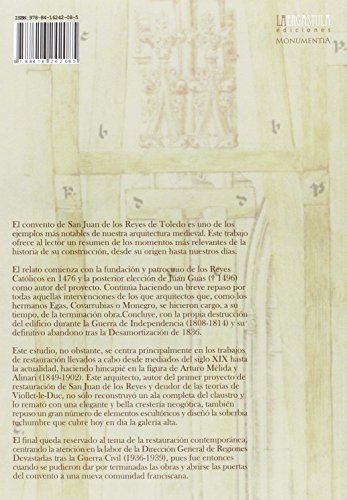 ISBN: 978-84-16242-08-5
9 788416 242085
LA ERGASTULA
ediciones
MONUMENTIA
El convento de San Juan de los Reyes de Toledo es uno de los
ejemplos más notables de nuestra arquitectura medieval. Este trabajo
ofrece al lector un resumen de los momentos más relevantes de la
historia de su construcción, desde su origen hasta nuestros días.
El relato comienza con la fundación y patrocinio de los Reyes
Católicos en 1476 y la posterior elección de Juan Guas († 1496)
como autor del proyecto. Continúa haciendo un breve repaso por
todas aquellas intervenciones de los que arquitectos que, como los
hermanos Egas, Covarrubias o Monegro, se hicieron cargo, a su
tiempo, de la terminación obra.Concluye, con la propia destrucción
del edificio durante la Guerra de Independencia (1808-1814) y su
definitivo abandono tras la Desamortización de 1836.
Este estudio, no obstante, se centra principalmente en los trabajos
de restauración llevados a cabo desde mediados del siglo XIX hasta
la actualidad, haciendo hincapié en la figura de Arturo Mélida y
Alinari (1849-1902). Este arquitecto, autor del primer proyecto de
restauración de San Juan de los Reyes y deudor de las teorías de
Viollet-le-Duc, no sólo reconstruyó un ala completa del claustro y
lo remató con una elegante y bella crestería neogótica, también
repuso un gran número de elementos escultóricos y diseñó la soberbia
techumbre que cubre hoy en día la galería alta.
El final queda reservado al tema de la restauración contemporánea,
centrando la atención en la labor de la Dirección General de Regiones
Devastadas tras la Guerra Civil (1936-1939), pues fue entonces
cuando se pudieron dar por terminadas las obras y abrirse las puertas
del convento a una nueva comunidad franciscana.